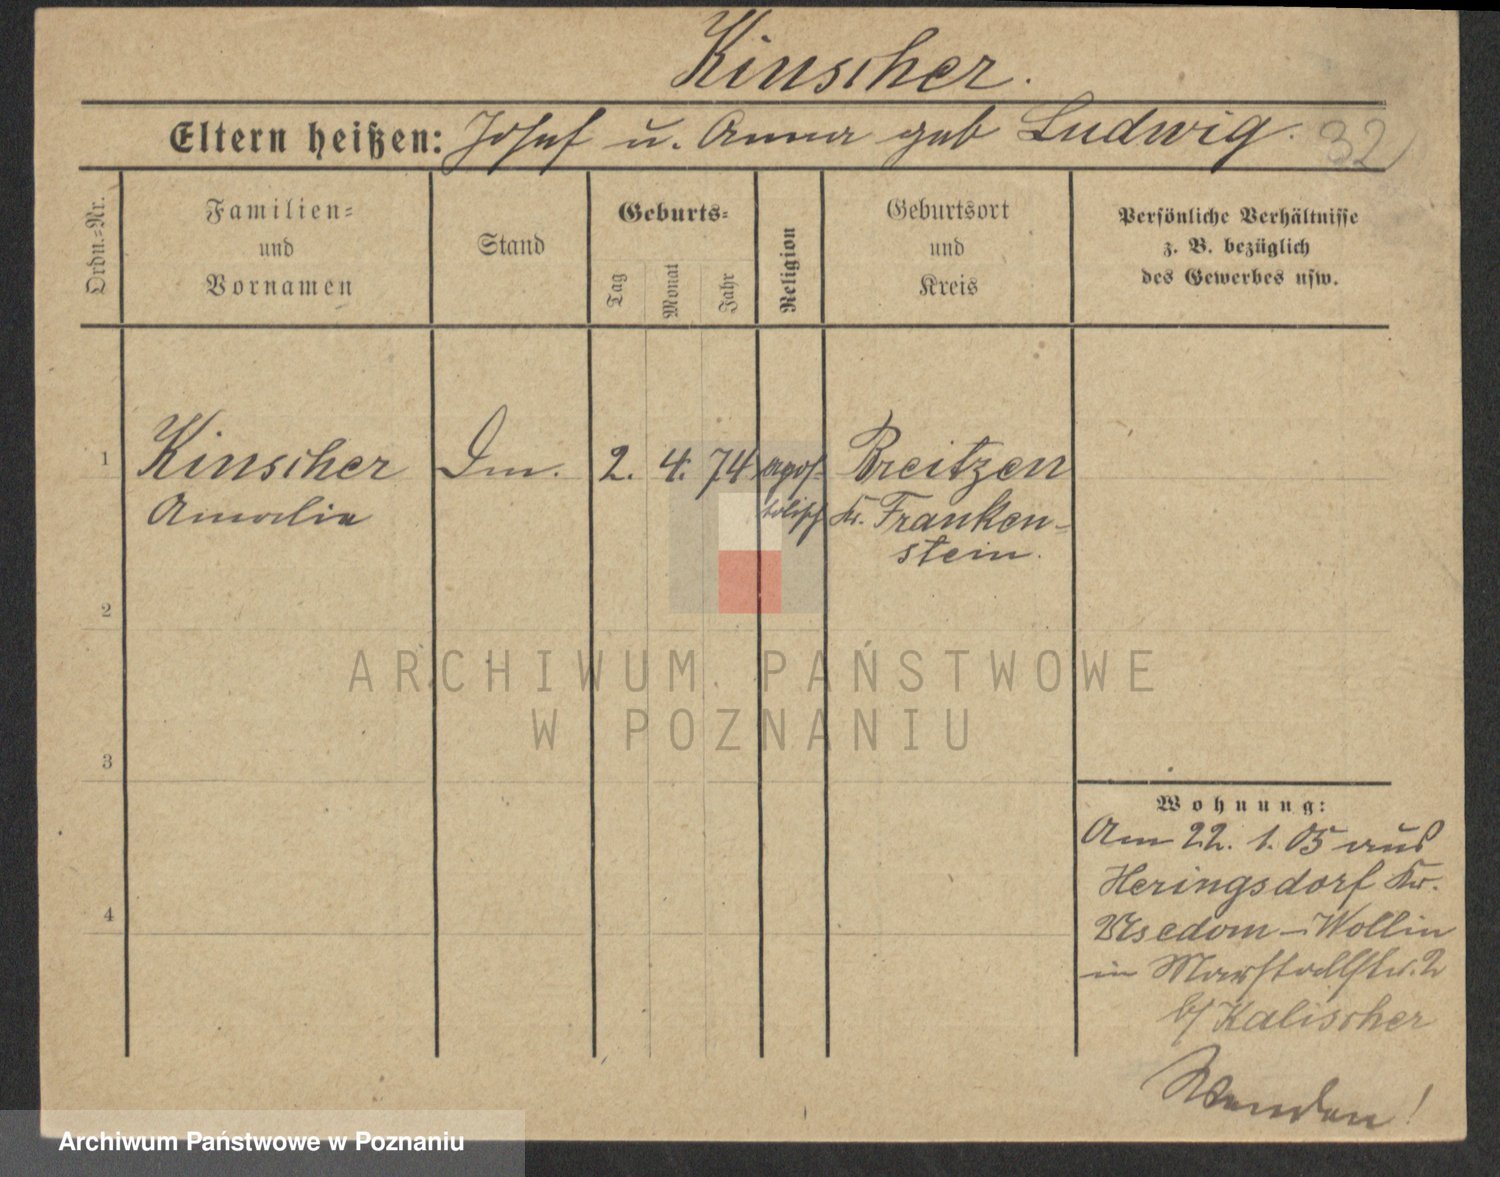 Kinscher.
Eltern heißen: Josef u. Anna geb Ludwig. 32
Ordn.=Nr.
Familien=
und
Vornamen
Stand
Geburts=
Tag
Monat
Jahr
Religion
Geburtsort
und
Kreis
Persönliche Verhältnisse
z. B. bezüglich
des Gewerbes usw.
1 Kinscher 2. 4. 74 apos= Breitzen
Amalie tolisch Kr. Franken=
stein.
2
3
4
Wohnung:
Am 22. 1. 05 aus
Heringsdorf Kr.
Usedom-Wollin
in Marstallstr. 2
b/ Kalischer
Wenden!
ARCHIWUM PAŃSTWOWE
W POZNANIU
Archiwum Państwowe w Poznaniu